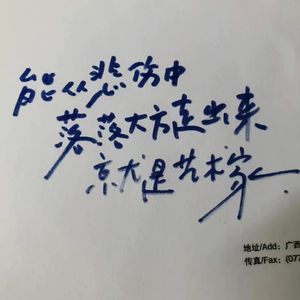 能从悲伤中
落落大方走出来
就是艺术家
地址/Add: 广西
传真/Fax: (077